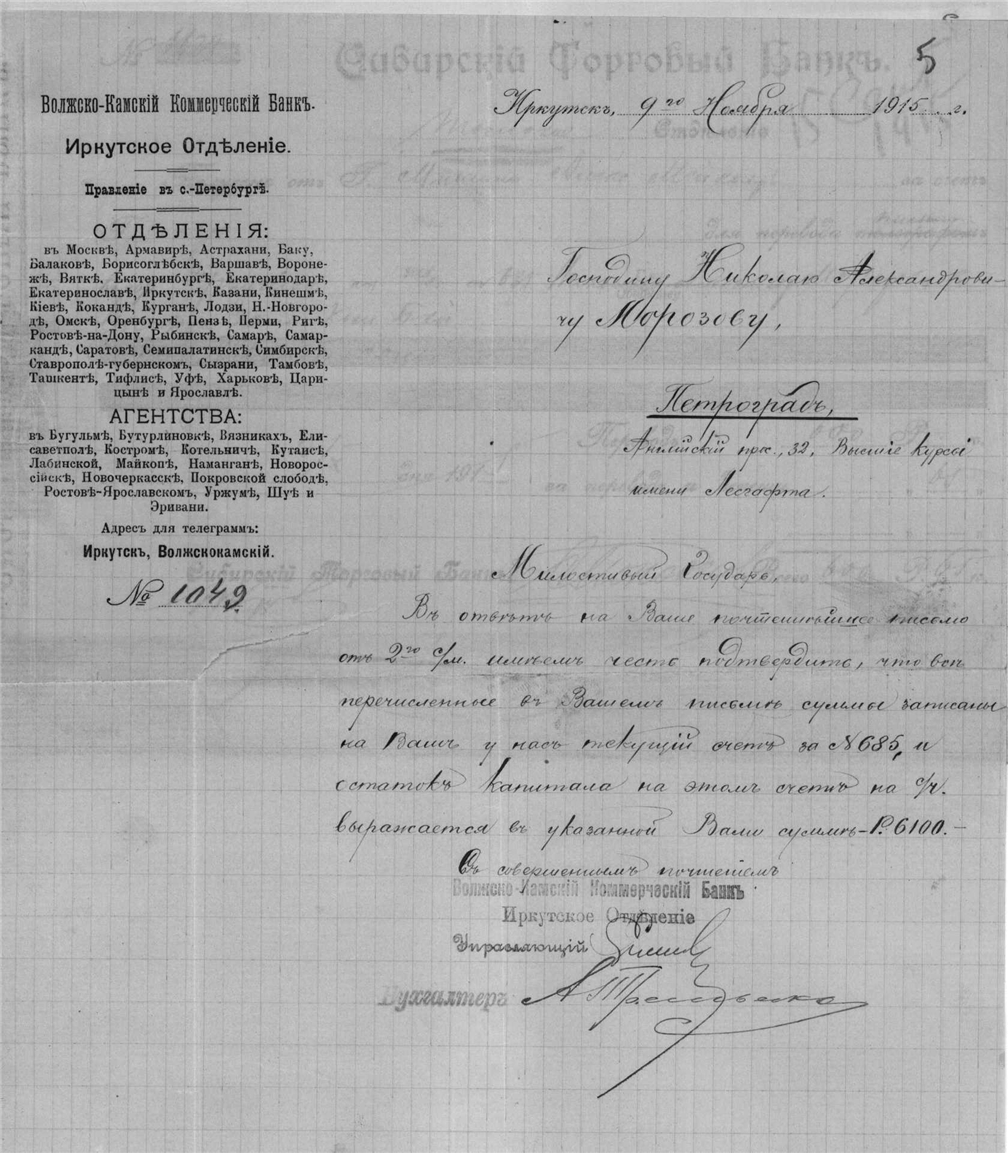 5
Волжско-Камскій Коммерческій Банкъ.
Иркутское Отдѣленіе.
Правленіе въ с.-Петербургѣ.
ОТДѢЛЕНІЯ:
въ Москвѣ, Армавирѣ, Астрахани, Баку,
Балаковѣ, Борисоглѣбскѣ, Варшавѣ, Вороне-
жѣ, Вяткѣ, Екатеринбургѣ, Екатеринодарѣ,
Екатеринославѣ, Иркутскѣ, Казани, Кинешмѣ,
Кіевѣ, Кокандѣ, Курганѣ, Лодзи, Н.-Новгоро-
дѣ, Омскѣ, Оренбургѣ, Пензѣ, Перми, Ригѣ,
Ростовѣ-на-Дону, Рыбинскѣ, Самарѣ, Самар-
кандѣ, Саратовѣ, Семипалатинскѣ, Симбирскѣ,
Ставрополѣ-губернскомъ, Сызрани, Тамбовѣ,
Ташкентѣ, Тифлисѣ, Уфѣ, Харьковѣ, Цари-
цынѣ и Ярославлѣ.
АГЕНТСТВА:
въ Бугульмѣ, Бутурлиновкѣ, Вязникахъ, Ели-
саветполѣ, Костромѣ, Котельничѣ, Кутаисѣ,
Лабинской, Майкопѣ, Наманганѣ, Новорос-
сійскѣ, Новочеркасскѣ, Покровской слободѣ,
Ростовѣ-Ярославскомъ, Уржумѣ, Шуѣ и
Эривани.
Адресъ для телеграммъ:
Иркутскъ, Волжскокамскій.
№ 1049
Иркутскъ, 9го Ноября 1915 г.
Господину Николаю Александрови-
чу Морозову,
Петроградъ,
Англійскій прс., 32, Высшіе курсы
имени Лесгафта.
Милостивый Государь,
Въ отвѣтъ на Ваше почтеннѣйшее письмо
отъ 2го с/м. имѣемъ честь подтвердить, что всѣ
перечисленные въ Вашемъ письмѣ суммы записаны
на Вашъ у насъ текущій счетъ за №685, и
остатокъ капитала на этомъ счетѣ на с/ч.
выражается въ указанной Вами суммѣ - Р. 6100. -
Съ совершеннымъ почтеніемъ
Волжско-Камскій Коммерческій Банкъ
Иркутское Отдѣленіе
Управляющій
Бухгалтеръ
Сибирскій Торговый Банкъ.
Сибирскій Торговый Банкъ